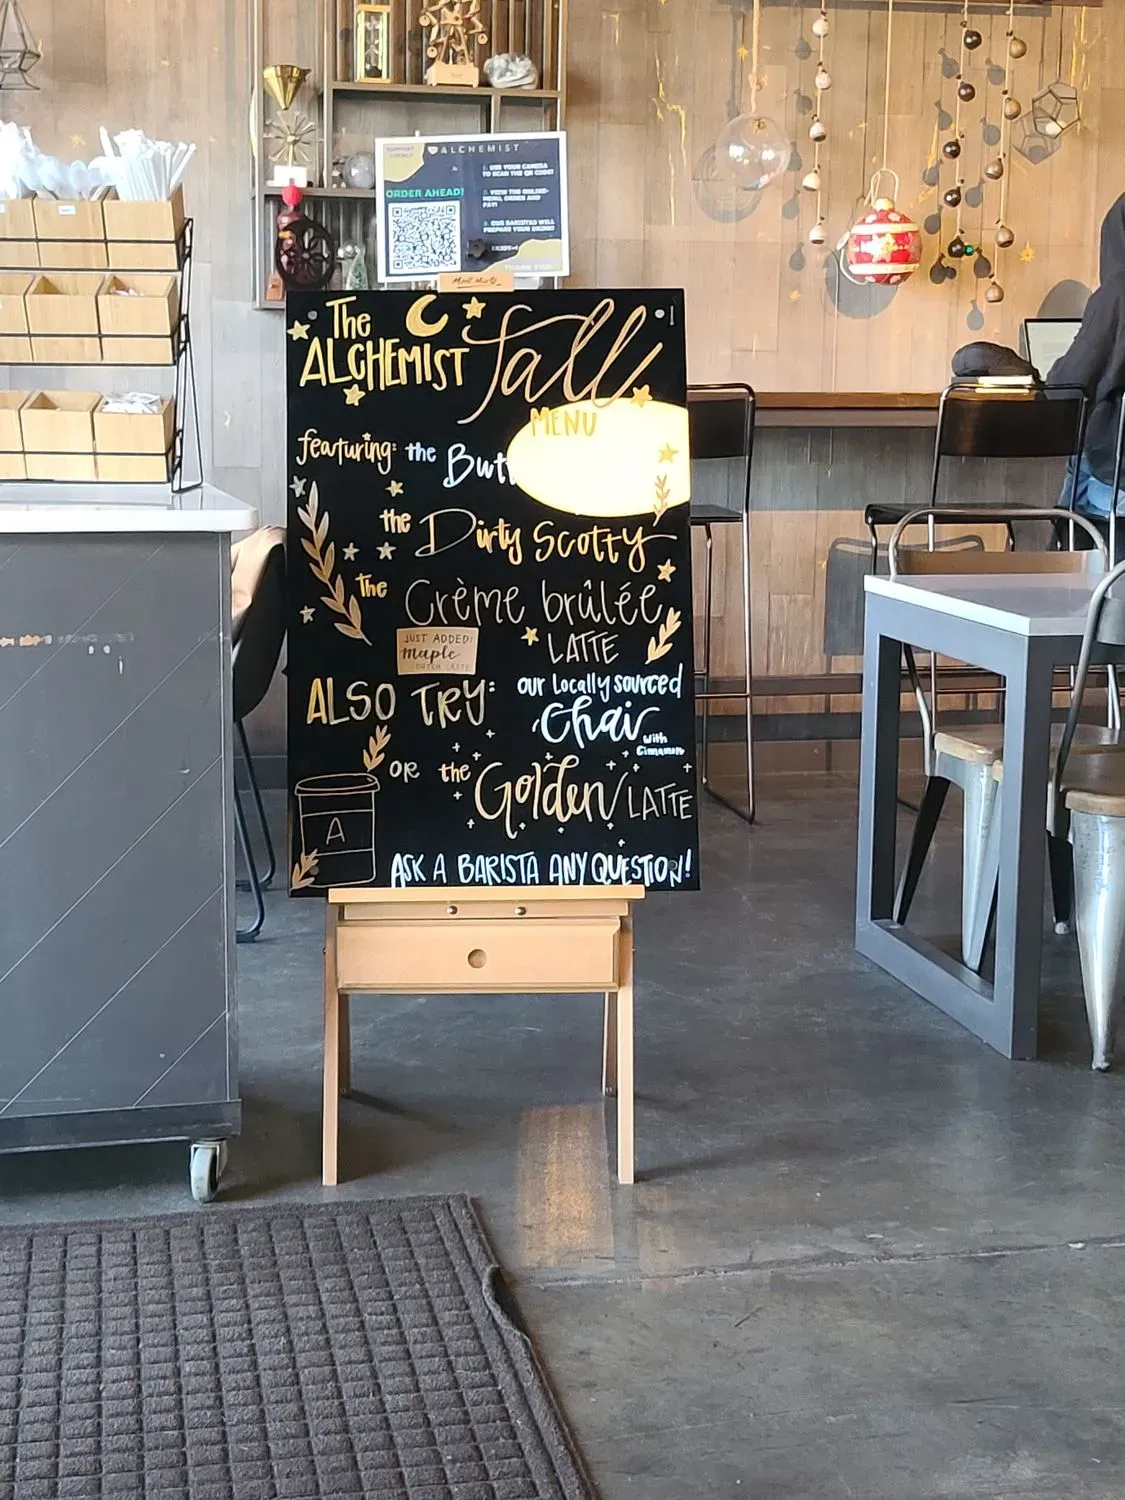 ALCHEMIST
ORDER AHEAD!
USE YOUR CAMERA
TO SCAN THE QR CODE!
VIEW THE ONLINE
MENU, ORDER AND
PAY!
OUR BARISTAS WILL
PREPARE YOUR DRINK!
ENJOY
THANK YOU
The
ALCHEMIST fall
MENU
featuring: the
the Dirty Scotty
the Crème brûlée
LATTE
JUST ADDED:
maple
DUTCH LATTE
ALSO TRY: our locally sourced
Chai with
Cinnamon
OR the Golden LATTE
A
ASK A BARISTA ANY QUESTION!